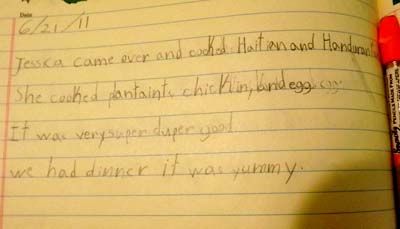 Date
6/21/11
Jessica came over and cooked Haitian and Handuran
She cooked plantaints chicklin, and egg
It was very super duper good.
we had dinner it was yummy.